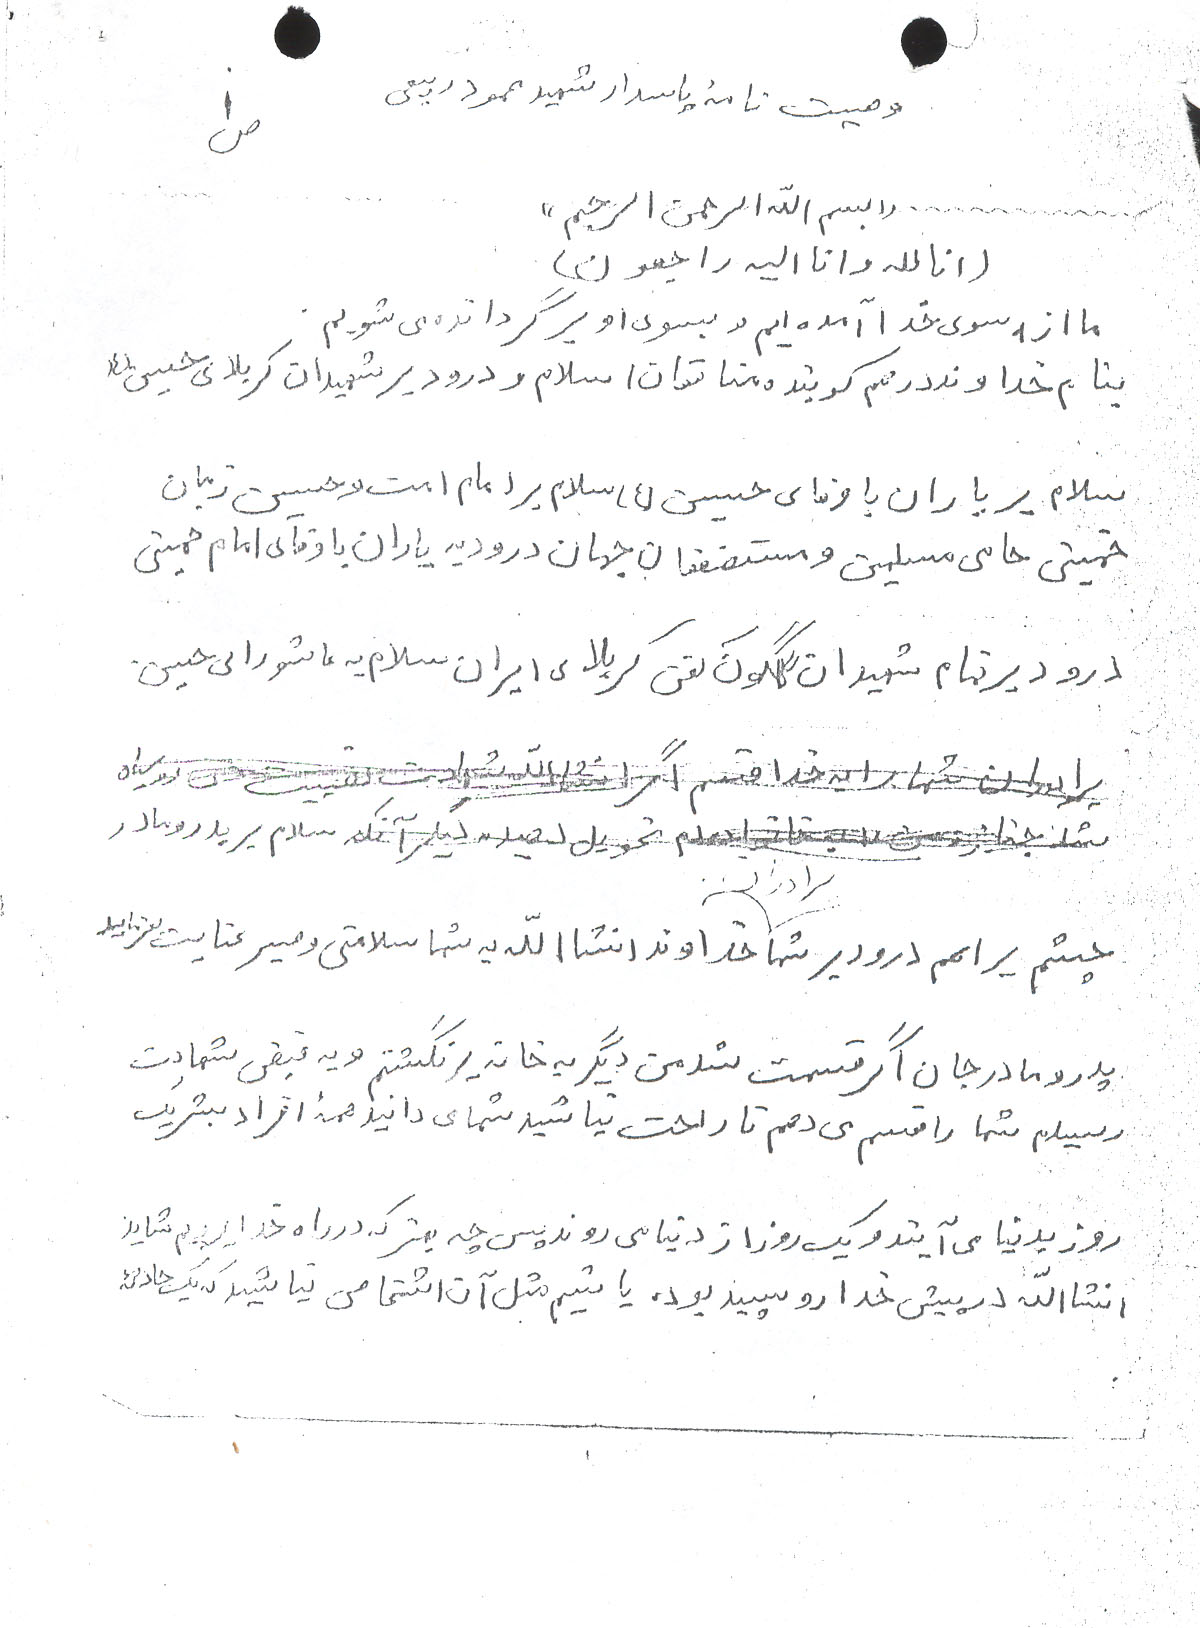 وصیت نامهٔ پاسدار شهید محمود ربیعی
ص ۱
«بسم الله الرحمن الرحیم»
(انا لله و انا الیه راجعون)
ما از سوی خدا آمده ایم و بسوی او برگردانده می شویم.
بنام خداوند درهم کوبنده منافقان اسلام و درود بر شهیدان کربلای حسینی
سلام بر یاران باوفای حسین (ع) سلام بر امام امت و حسین زمان
خمینی حامی مسلمین و مستضعفان جهان درود به یاران باوفای امام خمینی
درود بر تمام شهیدان گلگون کفن کربلای ایران سلام به عاشورای حسین.
برادران شما را به خدا قسم اگر انشاالله شهادت
تحویل دهید دیگر آنکه سلام بر پدر و مادر
برادران
چشم براهم درود بر شما خداوند انشاالله به شما سلامتی و صبر عنایت بفرماید
پدر و مادر جان اگر قسمت شد من دیگر به خانه برنگشتم و به فیض شهادت
رسیدم شما را قسم می دهم ناراحت نباشید شما می دانید همهٔ افراد بشر یک
روز بدنیا می آیند و یک روز از دنیا می روند پس چه بهتر که در راه خدا برویم شاید
انشاالله در پیش خدا رو سپید بوده باشیم مثل آن اشخاصی نباشید که یک حادثهٔ